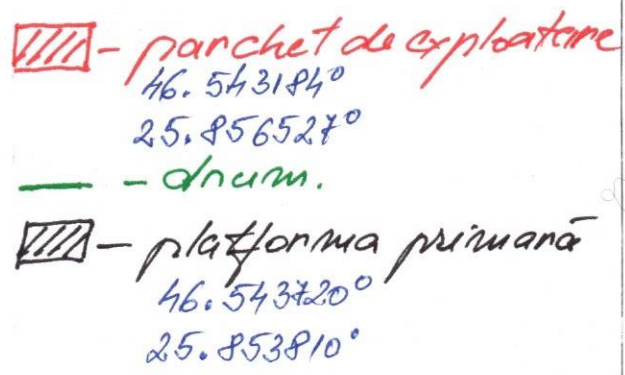 - parchet de exploatare
46.543184°
25.856527°
- drum.
- platforma primară
46.543720°
25.853810°